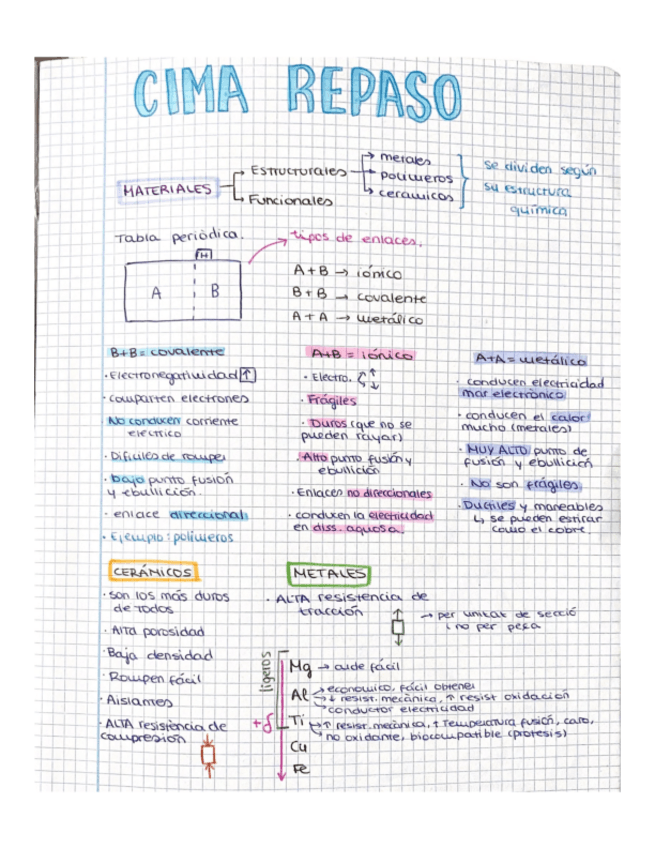 CIMA REPASO
MATERIALES
Estructurales
Funcionales
metales
polímeros
cerámicos
se dividen según
su estructura
química
Tabla periódica.
tipos de enlaces.
H
A
B
A+B → iónico
B+B → covalente
A+A → metálico
B+B = covalente
· Electronegatividad ↑
· comparten electrones
No conducen corriente
eléctrico
· Difíciles de romper
· bajo punto fusión
y ebullición.
· enlace direccional
· Ejemplo: polímeros
A+B = iónico
· Electro. ↑↓
· Frágiles
· Duros (que no se
pueden rayar)
· Alto punto fusión y
ebullición
· Enlaces no direccionales
· conducen la electricidad
en diss. aquosa.
A+A = metálico
· conducen electricidad
mar electrónico
· conducen el calor
mucho (metales)
· MUY ALTO punto de
fusión y ebullición
· No son frágiles
· Ductiles y maneables
↳ se pueden estirar
como el cobre.
CERÁMICOS
· son los más duros
de todos
· Alta porosidad
· Baja densidad
· Rompen fácil
· Aislantes
· ALTA resistència de
compresión
METALES
· ALTA resistencia de
tracción
→ per unitat de secció
i no per peça
ligeros
+δ
Mg → arde fácil
Al → economico, fácil obtener
↓ resist. mecánica, ↑ resist oxidación
conductor electricidad
Ti → ↑ resist. mecànica, ↑ Temperatura fusión, caro,
no oxidante, biocompatible (protesis)
Cu
Fe